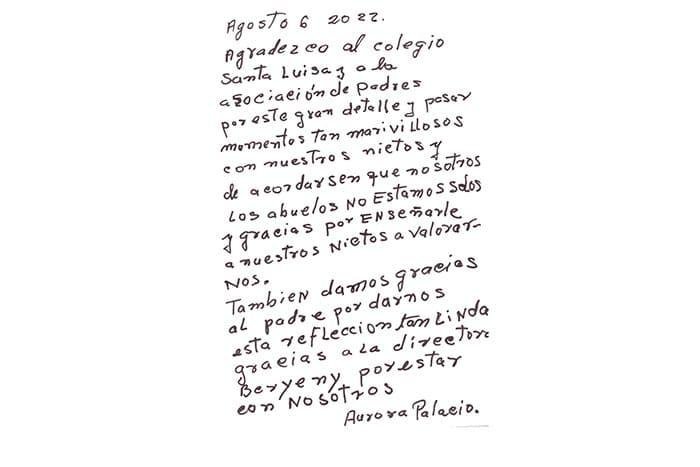 Agosto 6 2022.
Agradezco al colegio
Santa Luisa y a la
asociación de padres
por este gran detalle y pasar
momentos tan marivillosos
con nuestros nietos y
de acordarsen que nosotros
Los abuelos NO Estamos solos
y gracias por ENseñarle
a nuestros Nietos a valorar-
NOS.
Tambien damos gracias
al padre por darnos
esta refleccion tan LiNda
gracias a la director
Beryeny por estar
con NOSOTROS
Aurora Palacio.